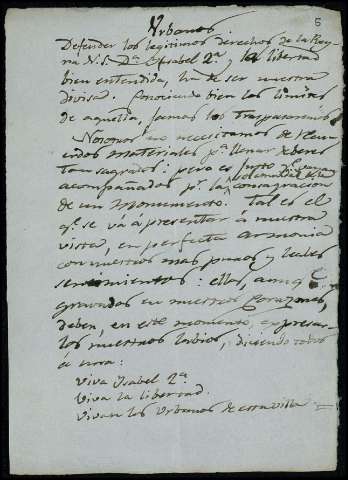 6
Urbanos
Defender los legitimos derechos de la Rey-
na N.S. Dª Isabel 2ª y la libertad
bien entendida, ha de ser nuestra
divisa. Conociendo bien los limites
de aquella, jamas los traspasaremos.
Nosotros no necesitamos de
materiales pª llenar deberes
tan sagrados: pero es justo qe vayan
acompañados pr la consagracion
de un monumento. Tal es el
qe se vá á presentar á nuestra
vista, en perfecta armonia
con nuestros mas puros y leales
sentimientos: ellos, aunqe
gravados en nuestros corazones,
deben, en este momento, expresar-
los nuestros labios, diciendo todos
á una:
Viva Isabel 2ª
Viva la libertad.
Vivan los Urbanos de esta villa